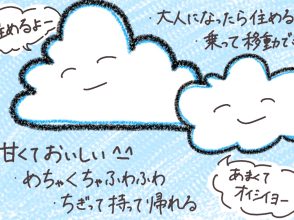 住めるよー
・大人になったら住める
・乗って移動で
甘くておいしい ^^
・めちゃくちゃふわふわ
・ちぎって持って帰れる
あまくて
オイショー